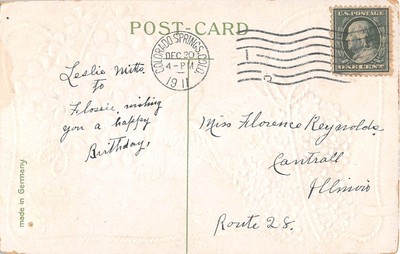 POST-CARD
COLORADO SPRINGS, COLO.
DEC 20
4-PM
1911
U.S. POSTAGE
ONE CENT
Leslie Mitts
to
Flossie, wishing
you a happy
Birthday,
Miss Florence Reynolds
Cantrall
Illinois
Route 28.
made in Germany